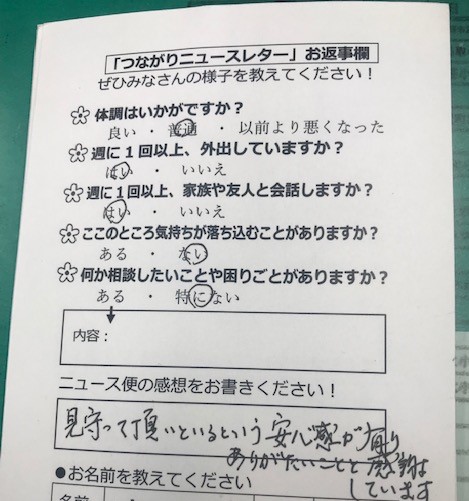 「つながりニュースレター」お返事欄
ぜひみなさんの様子を教えてください！
体調はいかがですか？
良い ・ 普通 ・ 以前より悪くなった
週に１回以上、外出していますか？
はい ・ いいえ
週に１回以上、家族や友人と会話しますか？
はい ・ いいえ
ここのところ気持ちが落ち込むことがありますか？
ある ・ ない
何か相談したいことや困りごとがありますか？
ある ・ 特にない
内容：
ニュース便の感想をお書きください！
見守って頂いているという安心感が有り
ありがたいことと感謝
しています
●お名前を教えてください
名前